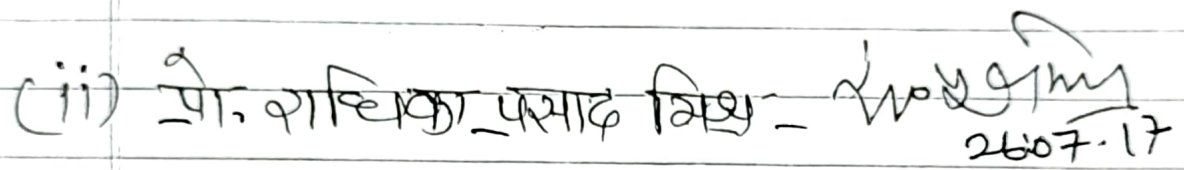 (ii) प्रो. राधिका प्रसाद मिश्र -
26.07.17